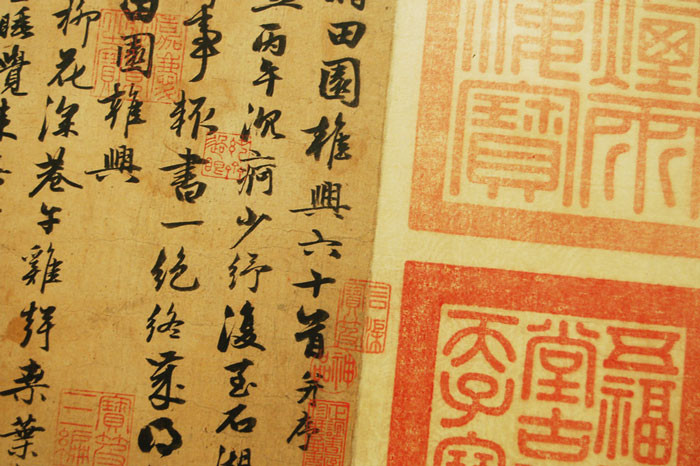 田園雜興六十首并序
丙午沉疴少紓復至石湖
事輒書一絕終歲
田園雜興
柳花深巷午雞聲桑葉
睡覺來
五福
堂古
天子寶
嘉慶
寶笈
三編